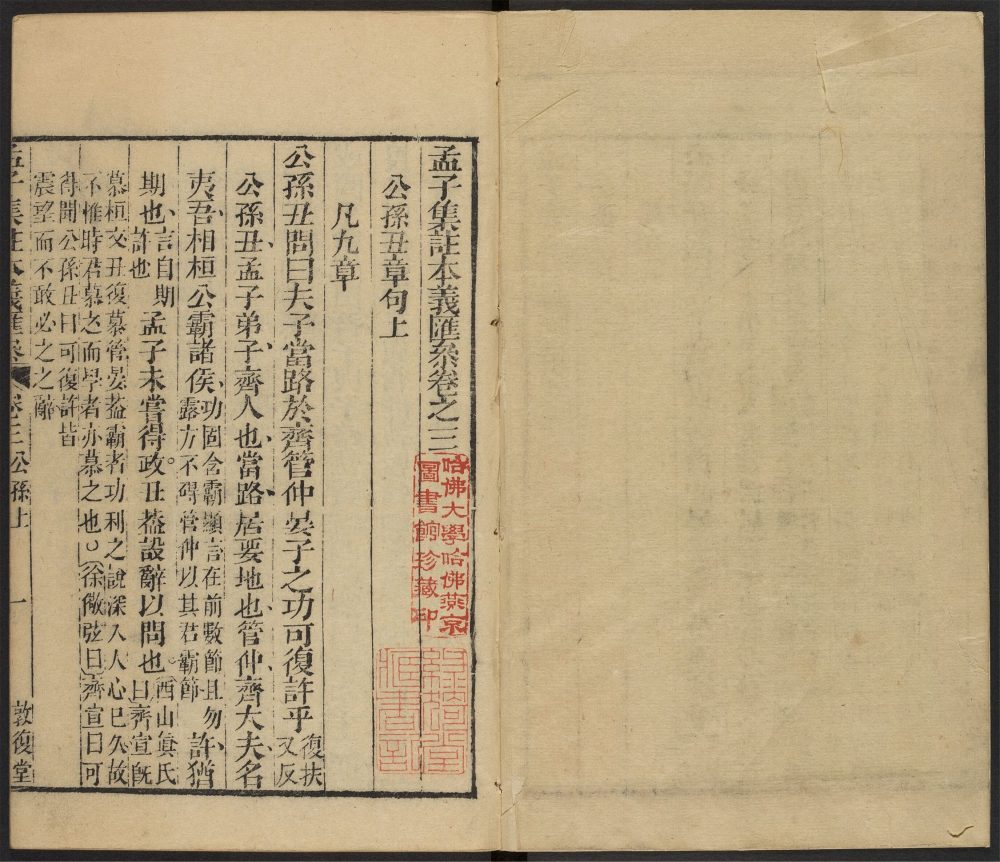 孟子集註本義匯叅卷之三
哈佛大學哈佛燕京
圖書館珍藏印
公孫丑章句上
凡九章
公孫丑問曰夫子當路於齊管仲晏子之功可復許乎
復扶
又反
公孫丑孟子弟子齊人也當路居要地也管仲齊大夫名
夷吾相桓公霸諸侯
功固含霸顯言在前數節且勿
露方不碍管仲以其君霸節
許猶
期也
言自期
許也
孟子未嘗得政。丑葢設辭以問也。
西山眞氏
曰齊宣旣
慕桓文丑復慕管晏葢霸者功利之說深入人心巳久故
不惟時君慕之而學者亦慕之也○徐儆弦曰齊宣曰可
得聞公孫丑曰可復許皆
震望而不敢必之之辭
孟子集註本義匯叅 卷三公孫上 一 敦復堂